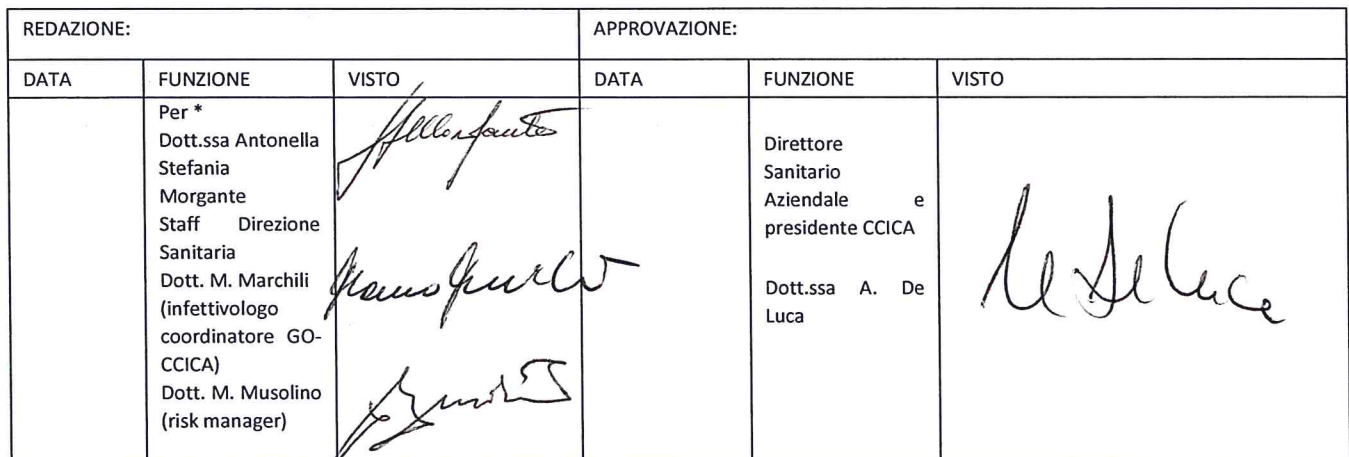 REDAZIONE:
APPROVAZIONE:
DATA
FUNZIONE
VISTO
DATA
FUNZIONE
VISTO
Per *
Dott.ssa Antonella
Stefania
Morgante
Staff Direzione
Sanitaria
Dott. M. Marchili
(infettivologo
coordinatore GO-
CCICA)
Dott. M. Musolino
(risk manager)
Direttore
Sanitario
Aziendale e
presidente CCICA
Dott.ssa A. De
Luca
De Luca